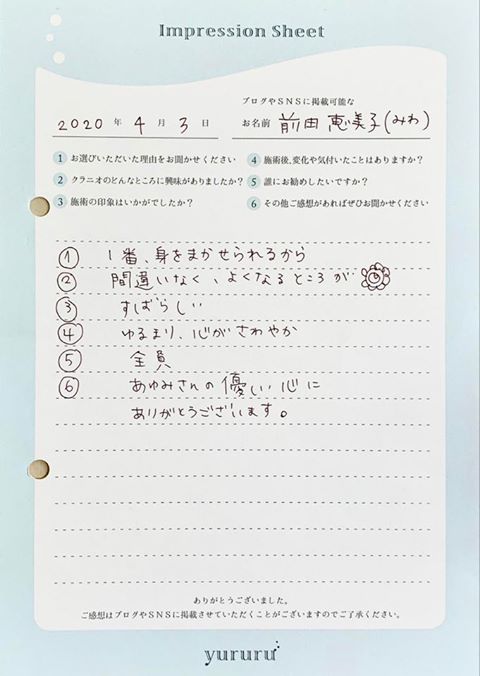 Impression Sheet
ブログやSNSに掲載可能な
2020 年 4 月 3 日 お名前 前田 恵美子(みわ)
1 お選びいただいた理由をお聞かせください
2 クラニオのどんなところに興味がありましたか?
3 施術の印象はいかがでしたか?
4 施術後、変化や気付いたことはありますか?
5 誰にお勧めしたいですか?
6 その他ご感想があればぜひお聞かせください
① 1番、身をまかせられるから
② 間違いなく、よくなるところが
③ すばらしい
④ ゆるまり、心がさわやか
⑤ 全員
⑥ あゆみさんの優しい心に
ありがとうございます。
ありがとうございました。
ご感想はブログやSNSに掲載させていただくことがございますのでご了承ください。
yururu